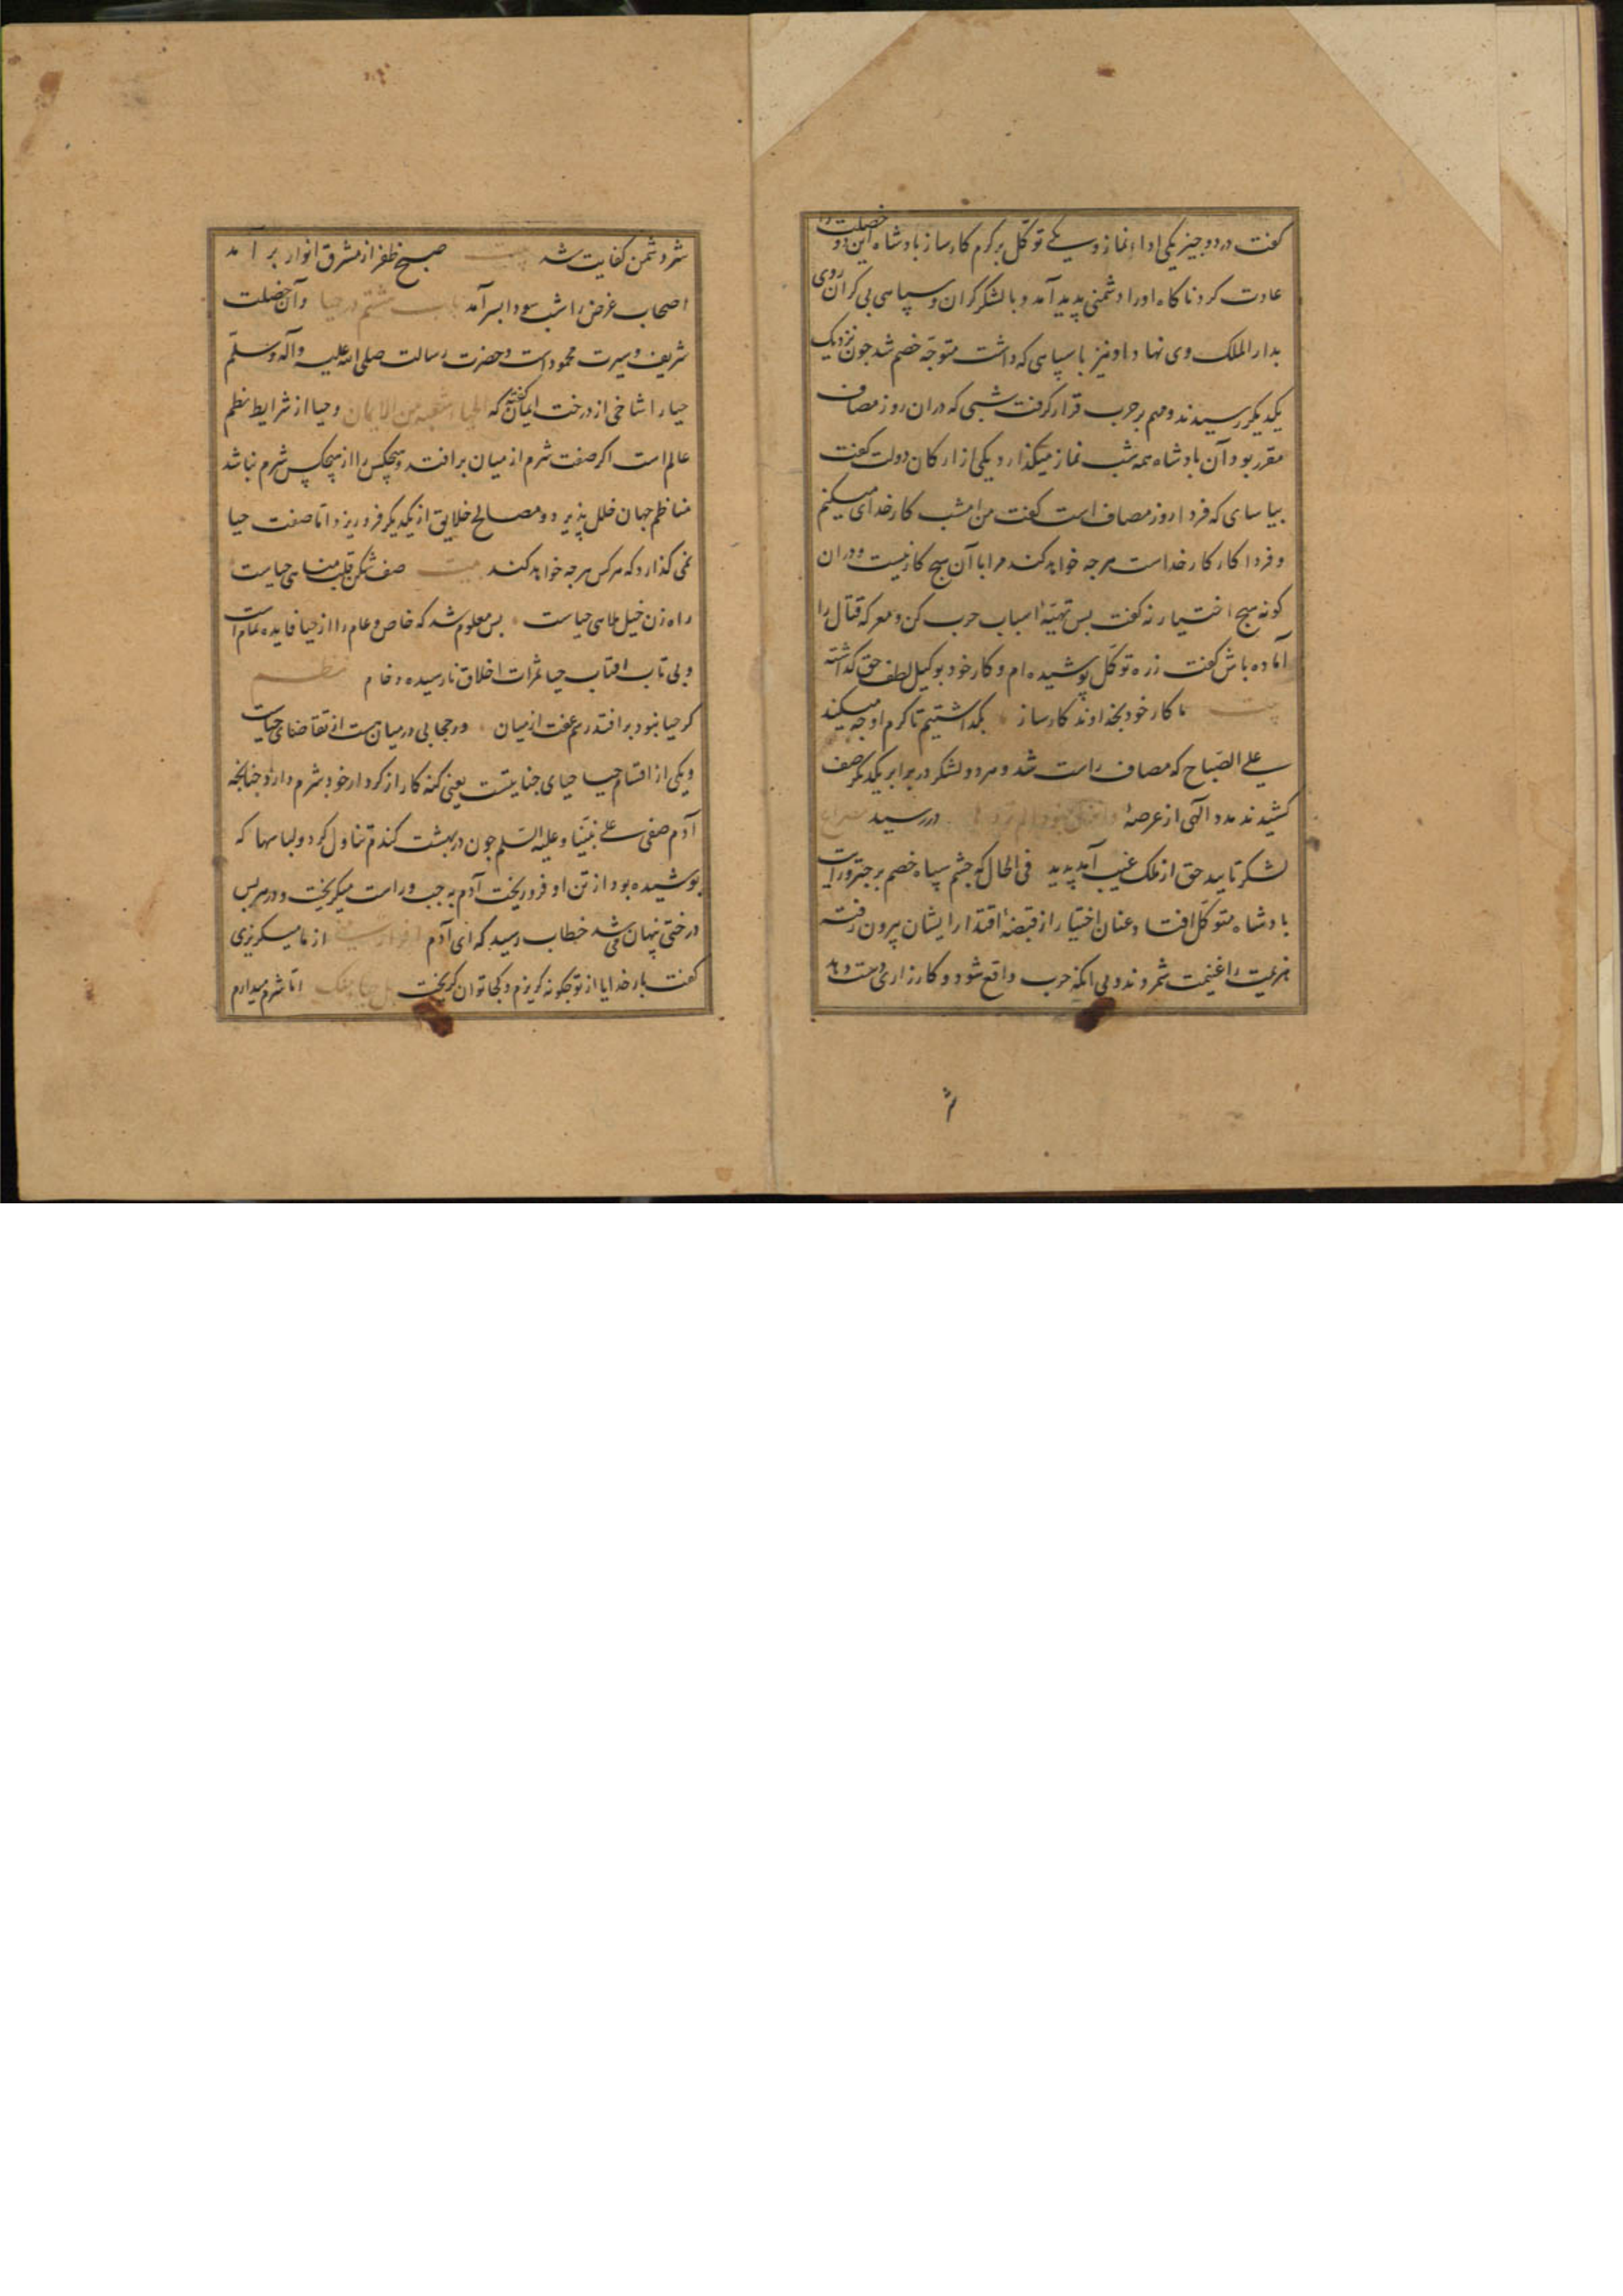 کفت در دو چیز یکی اداء نماز و یکی توکّل بر کرم کارساز بادشاه این دو خصلت را
عادت کرد ناکاه او را دشمنی پدید آمد و با لشکر کران و سپاهی بی کران روی
بدار الملک وی نهاد او نیز با سپاهی که داشت متوجّه خصم شد جون نزدیک
یکدیکر رسیدند و مهم بر حرب قرار کرفت شبی که در ان روز مصاف
مقرر بود آن بادشاه همه شب نماز میکذارد یکی از ارکان دولت کفت
بیاسای که فردا روز مصاف است کفت من امشب کار خدای میکنم
و فردا کار کار خداست هرجه خواهد کند مرا با آن هیج کار نیست و در ان
کونه هیج اختیار نه کفت بس تهیّهٔ اسباب حرب کن و معرکه قتال را
آماده باش کفت زره توکّل پوشیده ام و کار خود بوکیل لطف حق کذاشته
بیت ما کار خود بخداوند کارساز بکذاشتیم تا کرم او جه میکند
علی الصّباح که مصاف راست شد و هر دو لشکر در برابر یکدیکر صف
کشیدند مدد الٓهی از عرصهٔ در رسید مصراع
لشکر تایید حق از ملک غیب آمد پدید فی الحال که چشم سپاه خصم بر چتر و رایت
بادشاه متوکّل افتاد عنان اختیار از قبضهٔ اقتدار ایشان بیرون رفته
هزیمت را غنیمت شمردند و بی آنکه حرب واقع شود و کارزاری دست دهد
شر دشمن کفایت شد بیت صبح ظفر از مشرق انوار بر آمد
اصحاب غرض را شب سودا بسر آمد باب هشتم در حیا و آن خصلت
شریف و سیرت محمود است و حضرت رسالت صلی الله علیه و آله و سلّم
حیا را شاخی از درخت ایمان کفته که الحیاء شعبة من الایمان و حیا از شرایط نظم
عالم است اکر صفت شرم از میان بر افتد و هیچکس را از هیچکس شرم نباشد
مناظم جهان خلل پذیرد و مصالح خلایق از یکدیکر فرو ریزد امّا صفت حیا
نمی کذارد که هرکس هرجه خواهد کند بیت صف شکن قلب مناهی حیاست
راه زن خیل ملاهی حیاست بس معلوم شد که خاص و عام را از حیا فایده تمام است
و بی تاب افتاب حیا ثمرات اخلاق نارسیده و خام نظم
کر حیا نبود بر افتد رسم عفت از میان ور حجابی در میان هست از تقاضای حیاست
و یکی از اقسام حیا حیای جنایتست یعنی کنه کار از کردار خود شرم دارد چنانچه
آدم صفی علی نبیّنا و علیه السّلم جون در بهشت کندم تناول کرد و لباسها که
پوشیده بود از تن او فرو ریخت آدم به چب و راست میکریخت و در هر بس
درختی پنهان می شد خطاب رسید که ای آدم از ما میکریزی
کفت بار خدایا از تو جکونه کریزم و کجا توان کریخت امّا شرم میدارم